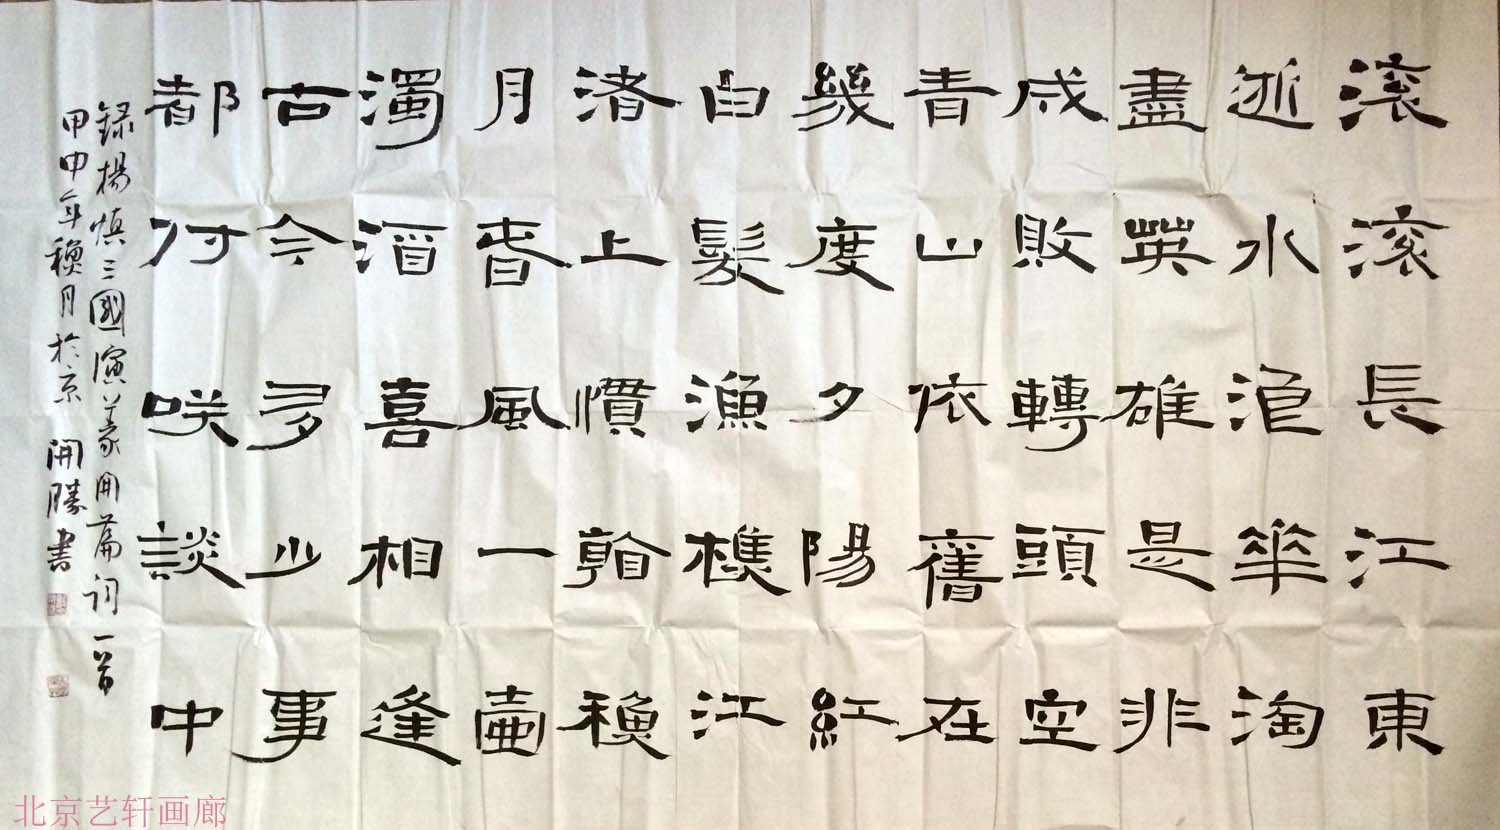 滚滚長江東
逝水浪華淘
盡英雄是非
成敗轉頭空
青山依舊在
幾度夕陽紅
白髮漁樵江
渚上慣看秋
月春風一壺
濁酒喜相逢
古今多少事
都付咲談中
録楊慎三國演義開篇词一首
甲申年秋月於京 開勝書
北京艺轩画廊